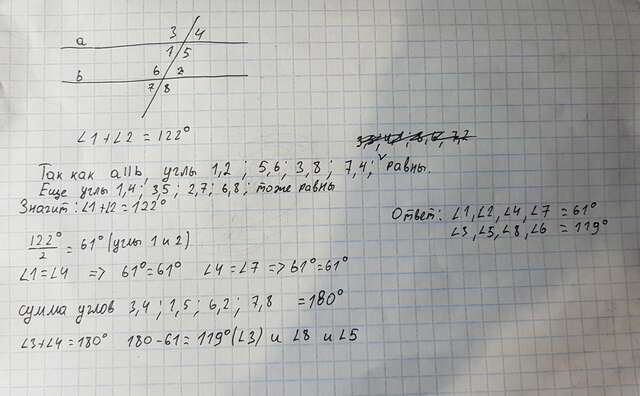 3 4
a
1 5
6 2
b
7 8
∠1+∠2 = 122°
Так как a||b, углы 1,2 ; 5,6 ; 3,8 ; 7,4 ; равны.
Еще углы 1,4 ; 3,5 ; 2,7 ; 6,8 ; тоже равны
Значит: ∠1+∠2 = 122°
122°/2 = 61° (углы 1 и 2)
∠1=∠4 => 61°=61° ∠4=∠7 => 61°=61°
сумма углов 3,4 ; 1,5 ; 6,2 ; 7,8 =180°
∠3+∠4=180° 180-61=119°(∠3) и ∠8 и ∠5
Ответ: ∠1,∠2,∠4,∠7 = 61°
∠3,∠5,∠8,∠6 = 119°